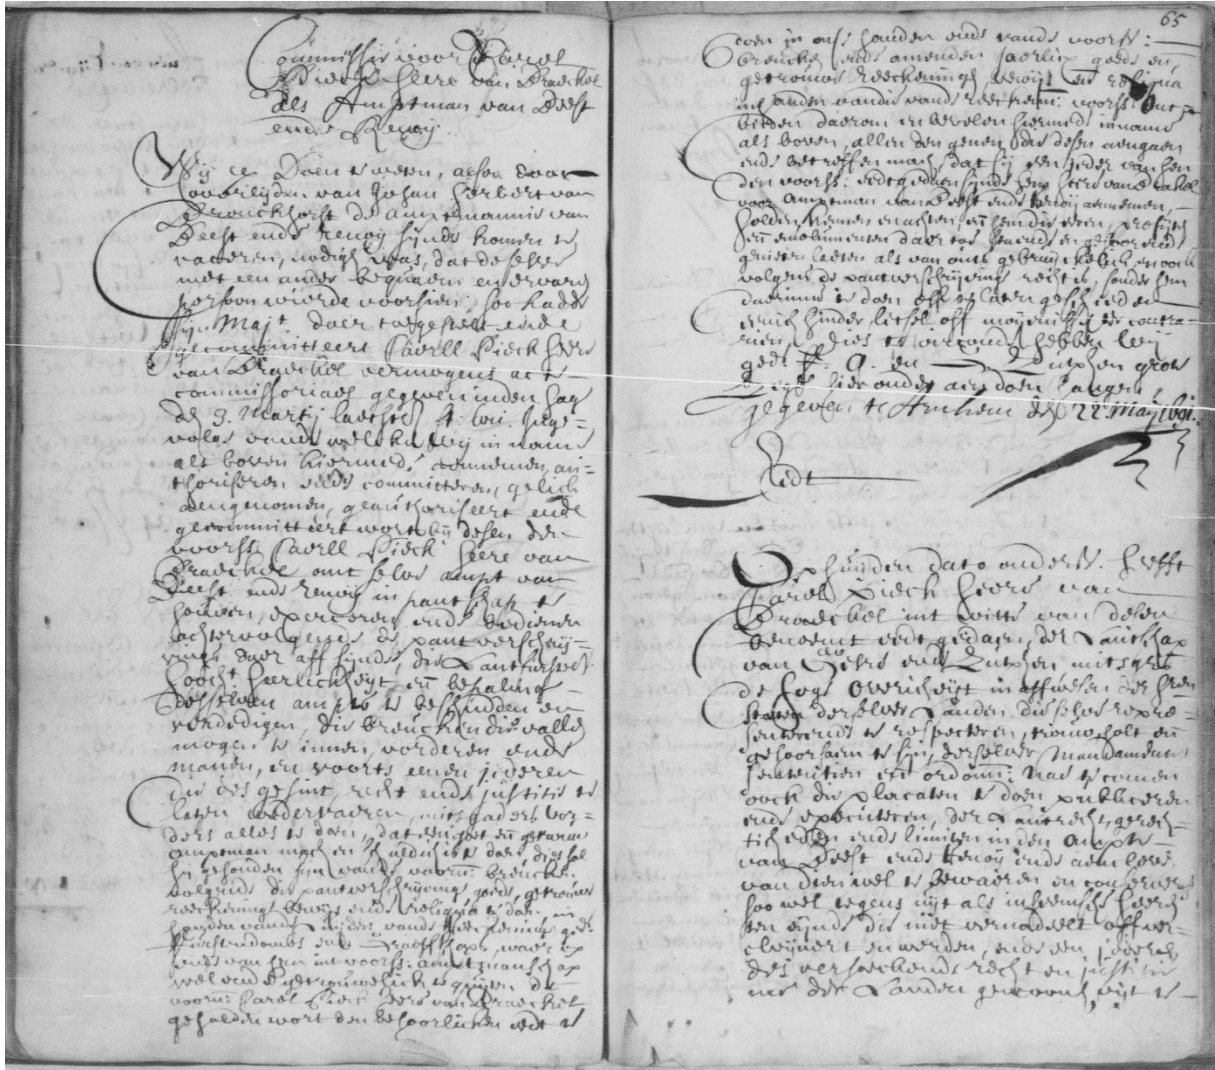 Commissie voor Carel
Pieck heere van Braeckel
als Amptman van Beest
ende Renoy
Wij etc. Doen te weten, alsoo door
overlijden van Johan Herbert van
Bronckhorst de amptmannie van
Beest ende Renoy sijnde komen te
vaceren, nodich was, dat deselve
met een ander bequaem en ervaren
persoon wierde voorsien, soo hadde
sijn Majt. daer toe gestelt ende
gecommitteert Caerll Pieck heere
van Braeckel vermogens acte
commissoriael gegeven inden Hage
den 3. Martij laetstl.
volge vande welcke wij in name
als boven hiermede aennemen, au-
thoriseren ende committeren, gelick
aengenomen, geauthoriseert ende
gecommitteert wort bij desen den
voorss. Caerll Pieck heere van
Braeckel omt selve ampt van
Beest ende Renoy in pantschap te
houden, exerceren ende bedienen
achtervolgende de pantverschrij-
vinge daer aff sijnde, die Lantfurstel.
hoocht heerlickheyt en bepalinge
desselven ampts te beschudden en
verdedigen, die breucken die vallen
mogen te innen, vorderen ende
manen, en voorts eenen jederen
die des gesint, recht ende justitie te
laten wedervaeren, mitsgaders voor-
ders alles te doen, dat een goet en getrouw
amptman mach en schuldich is te doen, dies sal
hij gehouden sijn vande voorn. breucken
volgende die pantverschrijvinge goede, getrouwe
reeckeninge bewijs ende reliqua te doen in
handen vande vande Reeckeninge des
Furstendombs ende Graeffschaps, waer op
ende van hem int voorss. amptmanschap
wel ende getrouwelick te quijten de
voorn. Carel Pieck heere van Braeckel
gehalden wort den behoorlicken eedt te
65
doen in onse handen ende vande voorss.
breucken ende amenden jaerlix goede en
getrouwe Reeckeninge bewijs en reliqua
inh anden vandie vande Reecken. voorss. ont-
bieden daerom en bevelen hiermede in name
als boven, allen den genen die desen aengaen
ende betreffen mach, dat sij een jeder van hen
den voorss. eedt gedaen sijnde heere van Brakel
voor Amptman van Beest ende Renoy aennemen,
holden, kennen en achten, en hem die eeren, profijten
en emolumenten daer toe staende en gehoorende
genieten laeten als van outs gebruyckelick, en oock
volgens de pantverschrijvinge recht is, sonder hem
daerinne te doen off te laten geschieden
eenich hinder, letsel off moyenisse ter contra-
rien, Dies te oirconde hebben wij
gedt. F. G. en Zutphen groot
Segel hier onder aen doen hangen
gegeven te Arnhem den 22. Maij 1661.
Eedt
Op huijden dato onderss. heefft
Carel Pieck heere van
Braeckel int witte van desen
genoemt eedt gedaen, der Lantschap
van Gelre ende Zutphen mitsgrs.
de Hoge Overicheyt in affwesen der heren
Staten derselver Landen dieselve repre-
senterende te respecteren, trouw, holt en
gehoorsaem te sijn, derselver Mandamenten
sententien en ordonn. nae te comen
oock die placaten te doen publiceren
ende executeren, der Lantrechten, gerech-
ticheden ende limiten inden Ampte
van Beest ende Renoy ende aencleve
van dien wel te bewaeren en conserveren
soo wel tegens uijt als inheemsche heeren
ten eynde die niet vernadeelt off ver-
cleynert en werden, ende een jederen
des versoeckende recht en justitie
nae der Landen gewoonheyt te